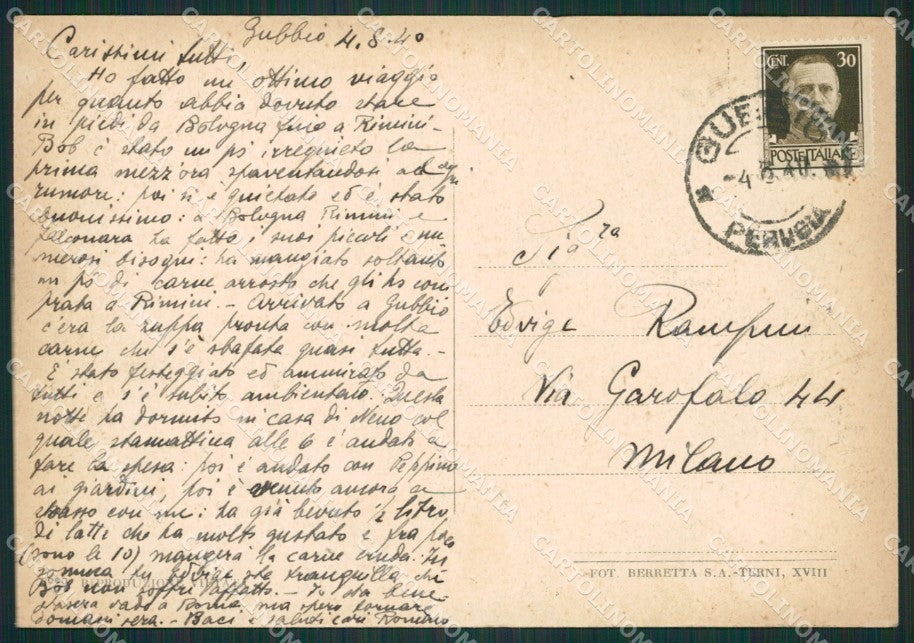 Gubbio 4.8.40
Carissimi tutti,
Ho fatto un ottimo viaggio
per quanto abbia dovuto stare
in piedi da Bologna fino a Rimini -
Bob è stato un pò irrequieto la
prima mezz'ora spaventandosi ad ogni
rumore: poi si è quietato ed è stato
buonissimo: a Bologna Rimini e
Falconara ha fatto i suoi piccoli e nu
merosi bisogni: ha mangiato soltanto
un pò di carne arrosto che gli ho com
prata a Rimini. - Arrivato a Gubbio
c'era la zuppa pronta con molta
carne che s'è sbafata quasi tutta. -
E' stato festeggiato ed ammirato da
tutti e s'è subito ambientato. Questa
notte ha dormito in casa di Neno col
quale stamattina alle 6 è andato a
fare la spesa: poi è andato con Peppino
ai giardini, poi è venuto ancora a
spasso con me: ha già bevuto ½ litro
di latte che ha molto gustato e fra poco
(sono le 10) mangerà la carne cruda. In
somma tu Edvige sta tranquilla chè
Bob non soffre affatto. - Io sto bene
stasera vado a Roma, ma spero tornare
domani sera. - Baci e saluti cari Romano
RIPRODUZIONE VIETATA
CENT. 30
POSTE ITALIANE
GUBBIO
-4.8.40.
PERUGIA
Sig.ra
Edvige Rampini
Via Garofalo 44
Milano
FOT. BERRETTA S.A.-TERNI, XVIII
CARTOLINOMANIA